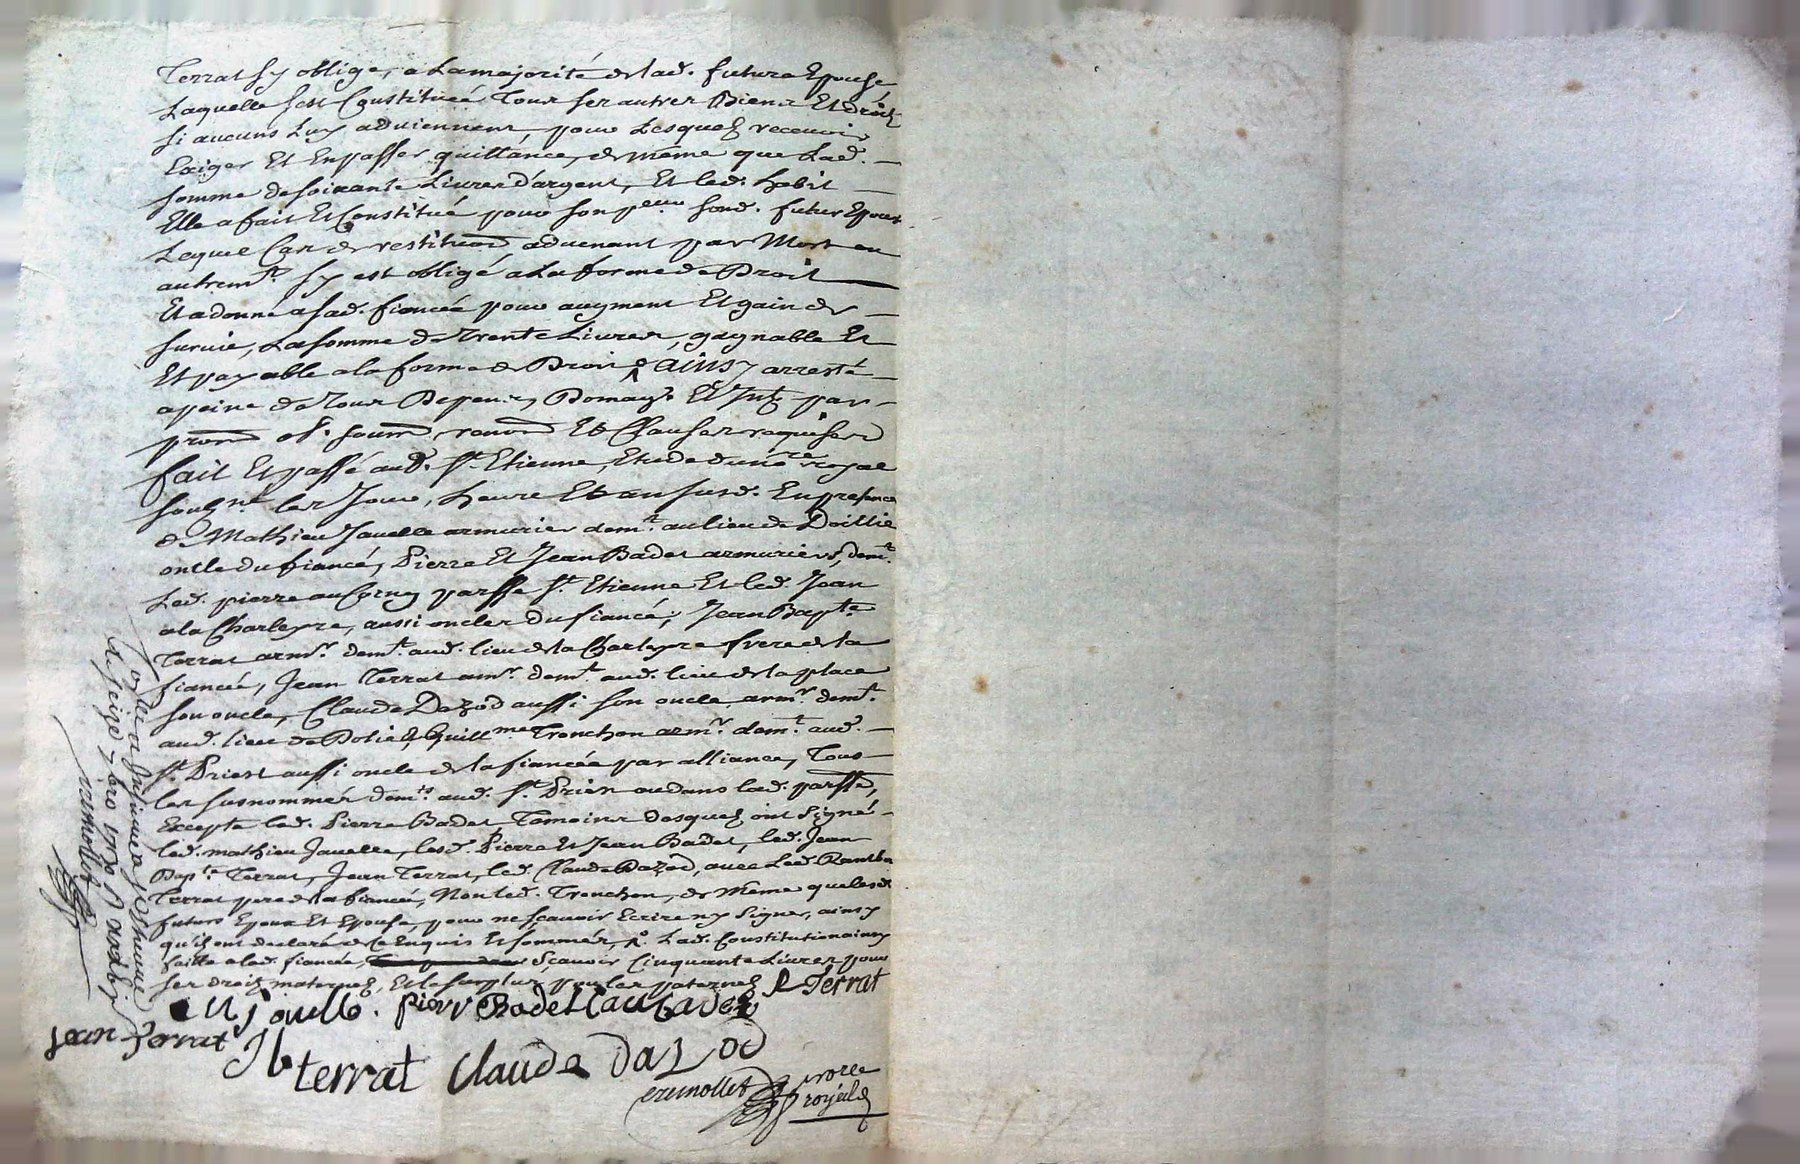 Terrat s'y oblige, a La majorité de lad. future Epouse
Laquelle s'est Constituée Tous ses autres Biens Et droits
si aucuns Luy adviennent, pour Lesquels recevoir
Exiger Et En passer quittance, de même que Lad.
somme de soixante Livres d'argent, Et led. habit
Elle a fait Et Constitué pour son p.eur sond. futur Epoux
Lequel Cas de restitu.on advenant par Mort ou
autrem.t s'y est obligé a La forme de Droit
Et a donné a sad. fiancée pour augment Et gain de
survie, La somme de Trente Livres, gagnable Et
Et payable a la forme de Droit ainsy arresté
a peine de Tous Depens, Domag.s Et Int. par
prom. ob. soum. renon. Et Clauses requises
fait Et passé aud. St. Etienne, Etude du no.re royal
souss.né les Jour, heure Et an susd. En presence
de Mathieu Jauelle armurier dem.t au lieu de
oncle du fiancé, Pierre Et Jean Badet armuriers, dem.t
Led. pierre au Corny parsse St. Etienne Et led. Jean
a la Charleyre, aussi oncles du fiancé, Jean Bap.te
Terrat arm.r dem.t aud. lieu de la Charleyre frere de la
fiancée, Jean Terrat arm.r dem.t aud. lieu de la place
son oncle, Claude Dazod aussi son oncle arm.r dem.t
aud. lieu de Guill.me Tronchon arm.r dem.t aud.
St. Priest aussi oncle de la fiancée par alliance, Tous
les susnommés dem.ts aud. St. Priest ou dans lad. parsse,
Excepté led. Pierre Badet Temoins Desquels ont signé
led. mathieu Jauelle, lesd. Pierre Et Jean Badet, led. Jean
Bap.te Terrat, Jean Terrat, led. Claude Dazod, avec Led.
Terrat pere de la fiancée, Non led. Tronchon, de Même que lesd.
futurs Epoux Et Epouse, pour ne sçavoir Ecrire ny signer, ainsy
qu'ils ont declaré de Ce Enquis Et sommés, Lad. Constitution ainsy
faitte a lad. fiancée, Sçavoir Cinquante Livres pour
ses droits maternels, Et le surplus pour les paternels R Terrat
M Jouelle . pierre Badet Badet
jean Terrat
JB terrat Claude Dazod
no.re
royal